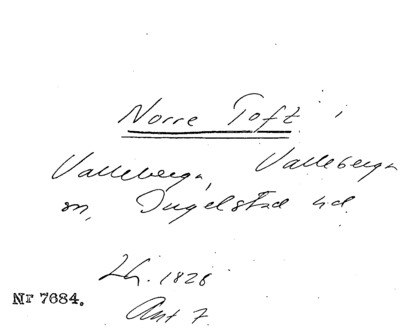 Norre Toft i
Valleberga, Valleberga
sn, Ingelstad hd.
Lh. 1828
Ant 7
Nr 7684.